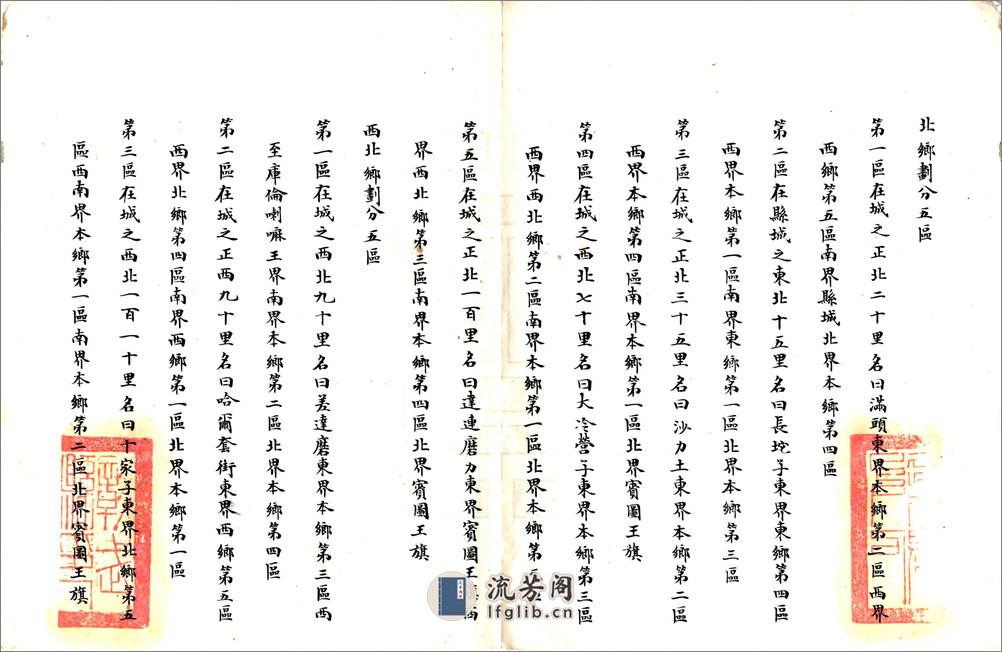 北鄉劃分五區
第一區在城之正北二十里名曰滿頭東界本鄉第二區西界
西鄉第五區南界縣城北界本鄉第四區
第二區在縣城之東北十五里名曰長坨子東界東鄉第四區
西界本鄉第一區南界東鄉第一區北界本鄉第三區
第三區在城之正北三十五里名曰沙力土東界本鄉第二區
西界本鄉第四區南界本鄉第一區北界賓圖王旗
第四區在城之西北七十里名曰大冷營子東界本鄉第三區
西界西北鄉第二區南界本鄉第一區北界本鄉第
第五區在城之正北一百里名曰達連磨力東界賓圖王旗西
界西北鄉第三區南界本鄉第四區北界賓圖王旗
西北鄉劃分五區
第一區在城之西北九十里名曰差達磨東界本鄉第三區西
至庫倫喇嘛王界南界本鄉第二區北界本鄉第四區
第二區在城之正西九十里名曰哈爾套街東界西鄉第五區
西界北鄉第四區南界西鄉第一區北界本鄉第一區
第三區在城之西北一百一十里名曰十家子東界北鄉第五
區西南界本鄉第一區南界本鄉第二區北界賓圖王旗
流芳阁
lfglib.cn